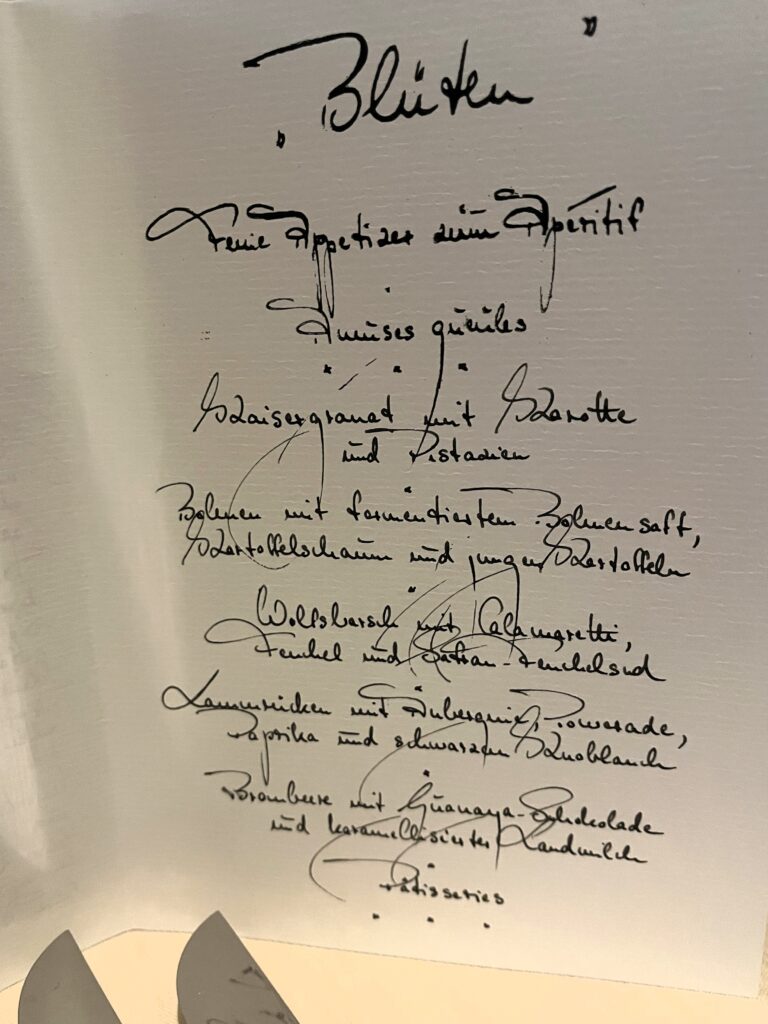 „Blüten“
Feine Appetizer zum Apéritif
Amuses gueules
Kaisergranat mit Karotte
und Pistazien
Bohnen mit fermentiertem Bohnensaft,
Kartoffelschaum und jungen Kartoffeln
Wolfsbarsch mit Calamaretti,
Fenchel und Safran-Fenchelsud
Lammrücken mit Aubergine,
Paprika und schwarzem Knoblauch
Brombeere mit Guanaja-Schokolade
und karamellisierter Landmilch
Pâtisseries